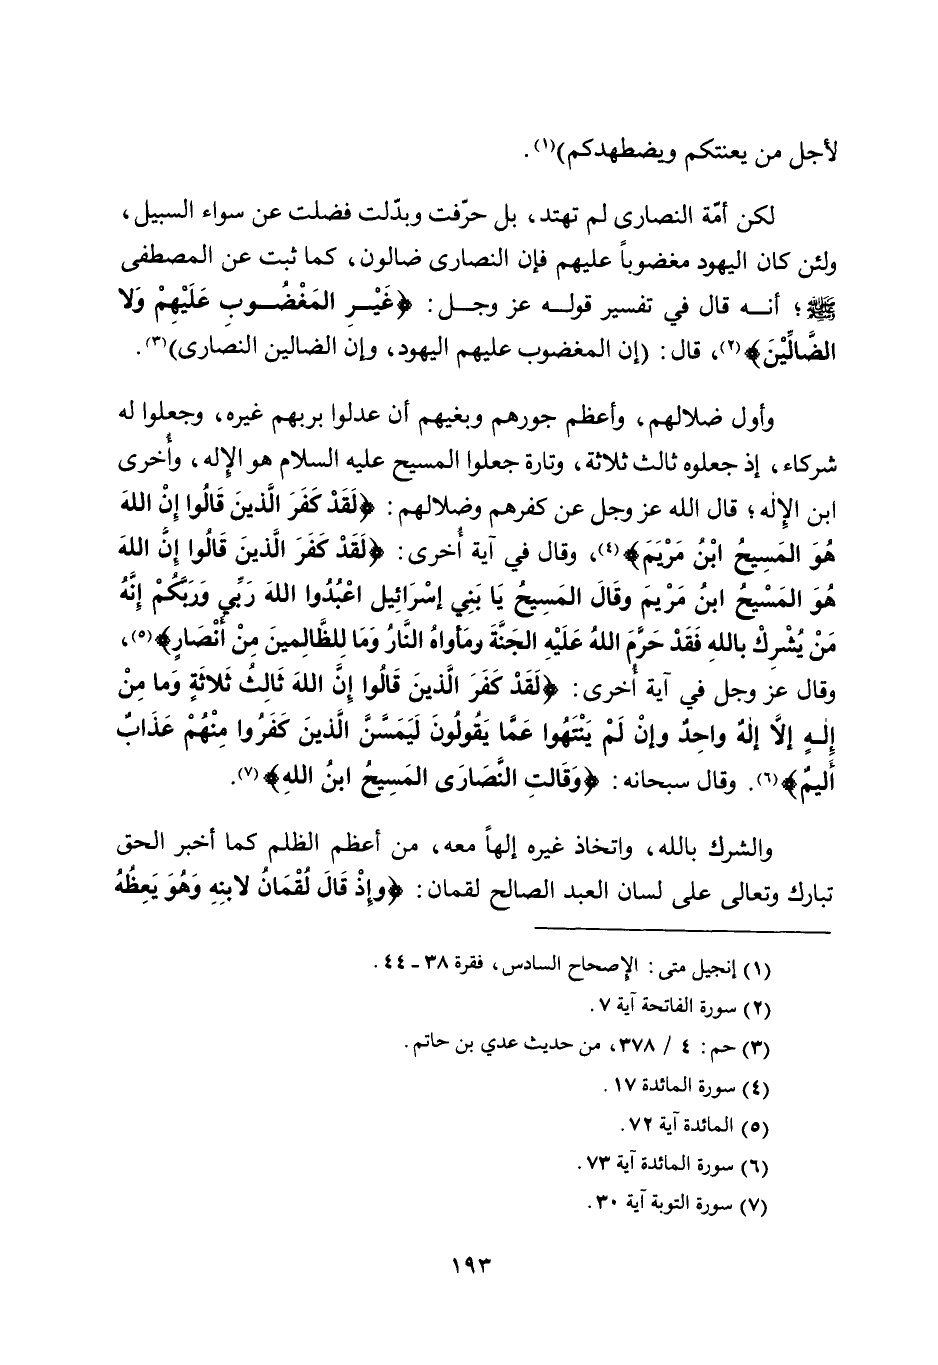 لأجل من يعنتكم ويضطهدكم)(١).
لكن أمّة النصارى لم تهتد، بل حرّفت وبدّلت فضلت عن سواء السبيل،
ولئن كان اليهود مغضوباً عليهم فإن النصارى ضالون، كما ثبت عن المصطفى
ﷺ؛ أنـــه قال في تفسير قولـــه عز وجـــل: ﴿غَيْـــرِ المَغْضُـــوبِ عَلَيْهِمْ وَلَا
الضَّالِّيْنَ﴾(٢)، قال: (إن المغضوب عليهم اليهود، وإن الضالين النصارى)(٣).
وأول ضلالهم، وأعظم جورهم وبغيهم أن عدلوا بربهم غيره، وجعلوا له
شركاء، إذ جعلوه ثالث ثلاثة، وتارة جعلوا المسيح عليه السلام هو الإله، وأُخرى
ابن الإلٰه؛ قال الله عز وجل عن كفرهم وضلالهم: ﴿لَقَدْ كَفَرَ الَّذينَ قَالُوا إِنْ اللهَ
هُوَ المَسِيحُ ابْنُ مَرْيَمَ﴾(٤)، وقال في آية أُخرى: ﴿لَقَدْ كَفَرَ الَّذينَ قَالُوا إِنَّ اللهَ
هُوَ المَسْيحُ ابنُ مَرْيمَ وقَالَ المَسِيحُ يَا بَنِي إسْرَائِيل اعْبُدُوا اللهَ رَبِّي وَرَبَّكُمْ إِنَّهُ
مَنْ يُشْرِكْ باللهِ فَقَدْ حَرَّمَ اللهُ عَلَيْهِ الجَنَّةَ ومَأواهُ النَّارُ وَمَا لِلظَّالِمينَ مِنْ أَنْصَارٍ﴾(٥)،
وقال عز وجل في آية أُخرى: ﴿لَقَدْ كَفَرَ الَّذينَ قَالُوا إِنَّ اللهَ ثَالِثُ ثَلَاثَةٍ وَما مِنْ
إِلـٰهٍ إلَّا إِلٰهٌ واحِدٌ وإنْ لَمْ يَنْتَهُوا عَمَّا يَقُولُونَ لَيَمَسَّنَّ الَّذينَ كَفَرُوا مِنْهُمْ عَذَابٌ
أَلِيمٌ﴾(٦). وقال سبحانه: ﴿وَقَالتِ النَّصَارَى المَسِيحُ ابنُ اللهِ﴾(٧).
والشرك بالله، واتخاذ غيره إلهاً معه، من أعظم الظلم كما أخبر الحق
تبارك وتعالى على لسان العبد الصالح لقمان: ﴿وإِذْ قَالَ لُقْمَانُ لابنِهِ وَهُوَ يَعِظُهُ
(١) إنجيل متى: الإصحاح السادس، فقرة ٣٨ ـ ٤٤.
(٢) سورة الفاتحة آية ٧.
(٣) حم: ٤ / ٣٧٨، من حديث عدي بن حاتم.
(٤) سورة المائدة ١٧.
(٥) المائدة آية ٧٢.
(٦) سورة المائدة آية ٧٣.
(٧) سورة التوبة آية ٣٠.
١٩٣